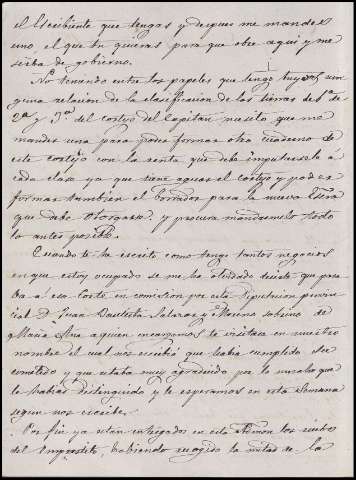 el Escribiente que tengas y despues me mandes
uno, el que tu quieras para que obre aqui y me
sirba de gobierno.
No teniendo entre los papeles que tengo tuyos, nin
guna relacion de la clasificacion de las tierras de 1ª
2ª y 3ª del cortijo del Capitan necesito que me
mandes una para poder formar otro cuaderno de
este cortijo con la renta que debe imputarsele á
cada clase ya que tiene aguas el cortijo y poder
formar tambien el borrador para la nueva Esra
que debe otorgarse y procura mandarmelo todo
lo antes posible.
Cuando te he escrito como tengo tantos negocios
en que estoy ocupado se me ha olvidado decirte que
ba á esa Corte en comision por esta Diputacion provin
cial Dn Juan Bautista Salazar y Moreno sobrino de
Maria Ana a quien encargamos te visitara en nuestro
nombre el cual nos escribió que habia cumplido su
cometido y que estaba muy agradecido por lo mucho que
lo habias distinguido y le esperamos en esta semana
segun nos escribe.
Por fin ya estan entregados en esta Admon los
del Emprestito, habiendo recogido la mitad de la